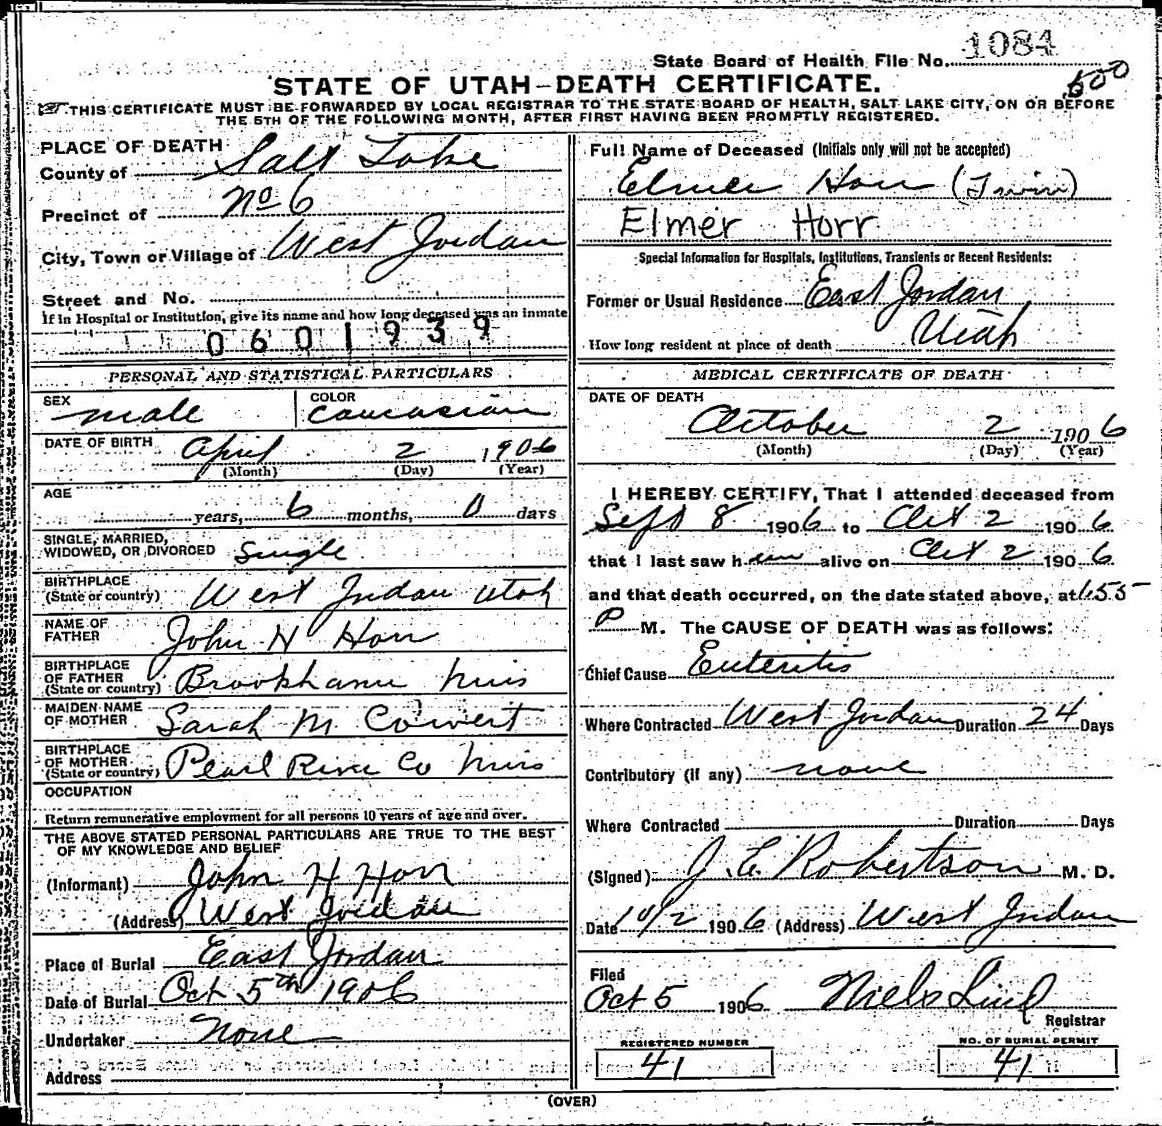 State Board of Health File No. 1084
500
STATE OF UTAH—DEATH CERTIFICATE.
THIS CERTIFICATE MUST BE FORWARDED BY LOCAL REGISTRAR TO THE STATE BOARD OF HEALTH, SALT LAKE CITY, ON OR BEFORE
THE 5TH OF THE FOLLOWING MONTH, AFTER FIRST HAVING BEEN PROMPTLY REGISTERED.
PLACE OF DEATH
County of Salt Lake
Precinct of No 6
City, Town or Village of West Jordan
Street and No.
If in Hospital or Institution, give its name and how long deceased was an inmate
0601939
PERSONAL AND STATISTICAL PARTICULARS
SEX male COLOR caucasian
DATE OF BIRTH April 2 1906
(Month) (Day) (Year)
AGE
years, 6 months, 0 days
SINGLE, MARRIED,
WIDOWED, OR DIVORCED Single
BIRTHPLACE
(State or country) West Jordan Utah
NAME OF
FATHER John H Horr
BIRTHPLACE
OF FATHER
(State or country) Brookhaven Miss
MAIDEN NAME
OF MOTHER Sarah M Cowert
BIRTHPLACE
OF MOTHER
(State or country) Pearl River Co Miss
OCCUPATION
Return remunerative employment for all persons 10 years of age and over.
THE ABOVE STATED PERSONAL PARTICULARS ARE TRUE TO THE BEST
OF MY KNOWLEDGE AND BELIEF
(Informant) John H Horr
(Address) West Jordan
Place of Burial East Jordan
Date of Burial Oct 5th 1906
Undertaker None
Address
Full Name of Deceased (Initials only will not be accepted)
Elmer Horr (Twin)
Elmer Horr
Special Information for Hospitals, Institutions, Transients or Recent Residents:
Former or Usual Residence East Jordan
Utah
How long resident at place of death
MEDICAL CERTIFICATE OF DEATH
DATE OF DEATH
October 2 1906
(Month) (Day) (Year)
I HEREBY CERTIFY, That I attended deceased from
Sept 8 1906 to Oct 2 1906
that I last saw him alive on Oct 2 1906
and that death occurred, on the date stated above, at 6.55
P M. The CAUSE OF DEATH was as follows:
Chief Cause Enteritis
Where Contracted West Jordan Duration 24 Days
Contributory (if any) none
Where Contracted Duration Days
(Signed) J. E. Robertson M. D.
Date 10/2 1906 (Address) West Jordan
Filed
Oct 5 1906 Niels Lind
Registrar
REGISTERED NUMBER
41
NO. OF BURIAL PERMIT
41
(OVER)